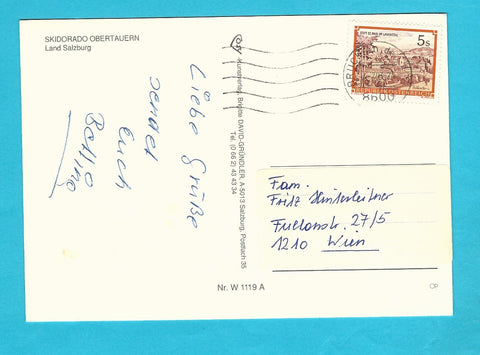 SKIDORADO OBERTAUERN
Land Salzburg
Liebe Grüße
sendet
Euch
Kunstverlag Brigitte DAVID-GRÜNDLER, A-5013 Salzburg, Postfach 35
Tel. (0 66 2) 43 43 34
STIFT ST. PAUL IM LAVANTTAL
5 S
REPUBLIK ÖSTERREICH
8600
Fam.
Fritz Hinterleitner
Fultonstr. 27/5
1210 Wien
Nr. W 1119 A
CP